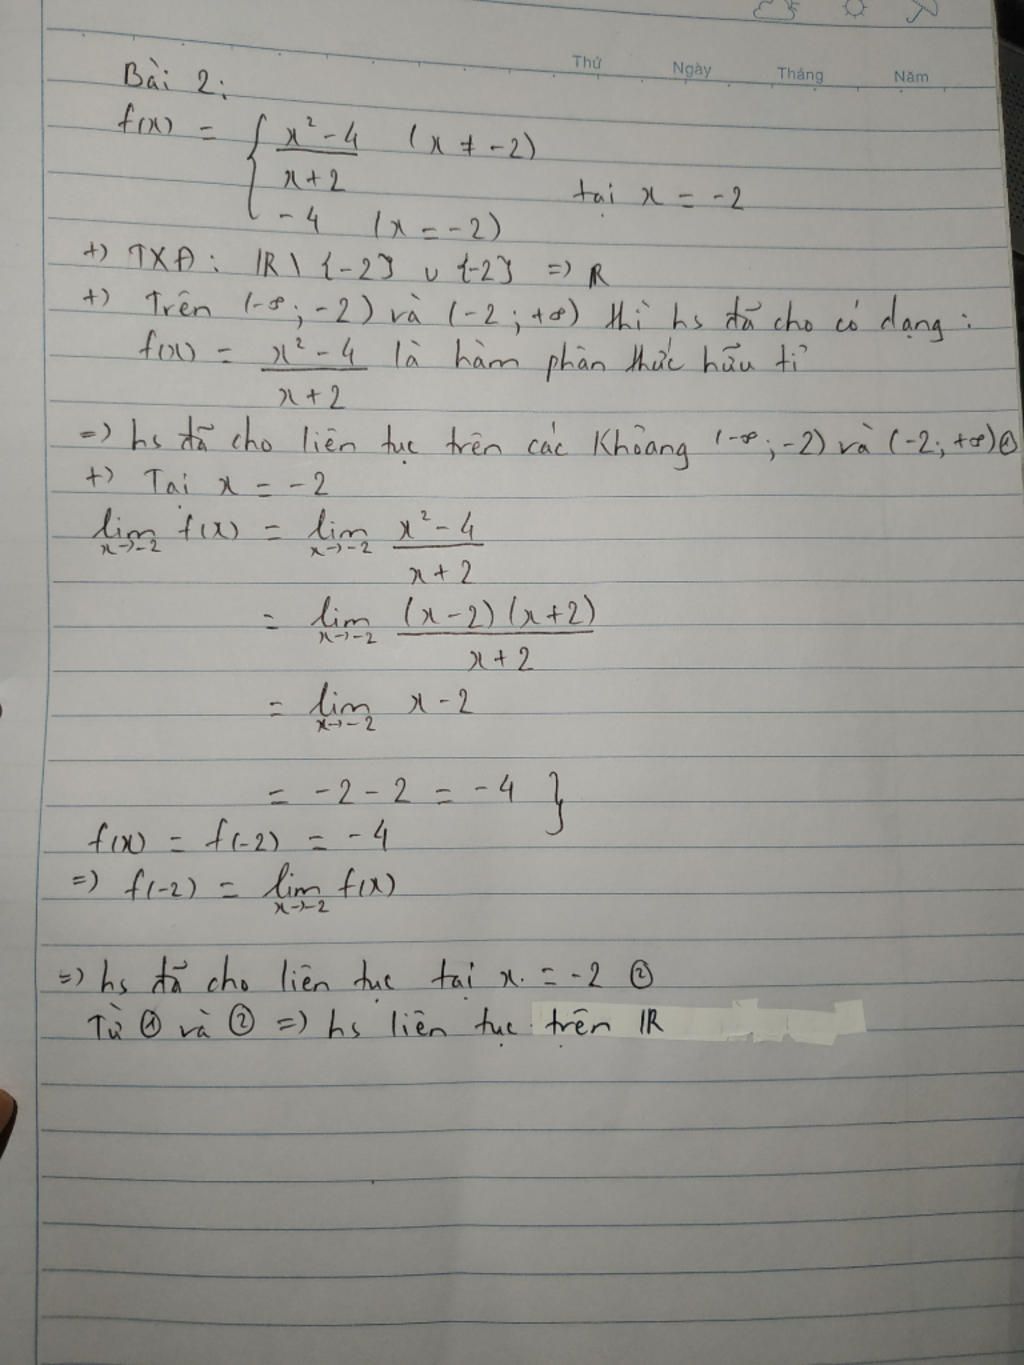 Thứ Ngày Tháng Năm
Bài 2:
f(x) = { x² - 4 / x + 2 (x ≠ -2)
- 4 (x = -2)
tại x = -2
+) TXĐ: ℝ \ {-2} ∪ {-2} => ℝ
+) Trên (-∞; -2) và (-2; +∞) thì hs đã cho có dạng:
f(x) = x² - 4 / x + 2 là hàm phân thức hữu tỉ
=) hs đã cho liên tục trên các Khoảng (-∞; -2) và (-2; +∞) ①
+) Tại x = -2
lim x→-2 f(x) = lim x→-2 x² - 4 / x + 2
= lim x→-2 (x-2)(x+2) / x + 2
= lim x→-2 x - 2
= -2 - 2 = -4 }
f(x) = f(-2) = -4
=) f(-2) = lim x→-2 f(x)
=) hs đã cho liên tục tại x = -2 ②
Từ ① và ② =) hs liên tục trên ℝ